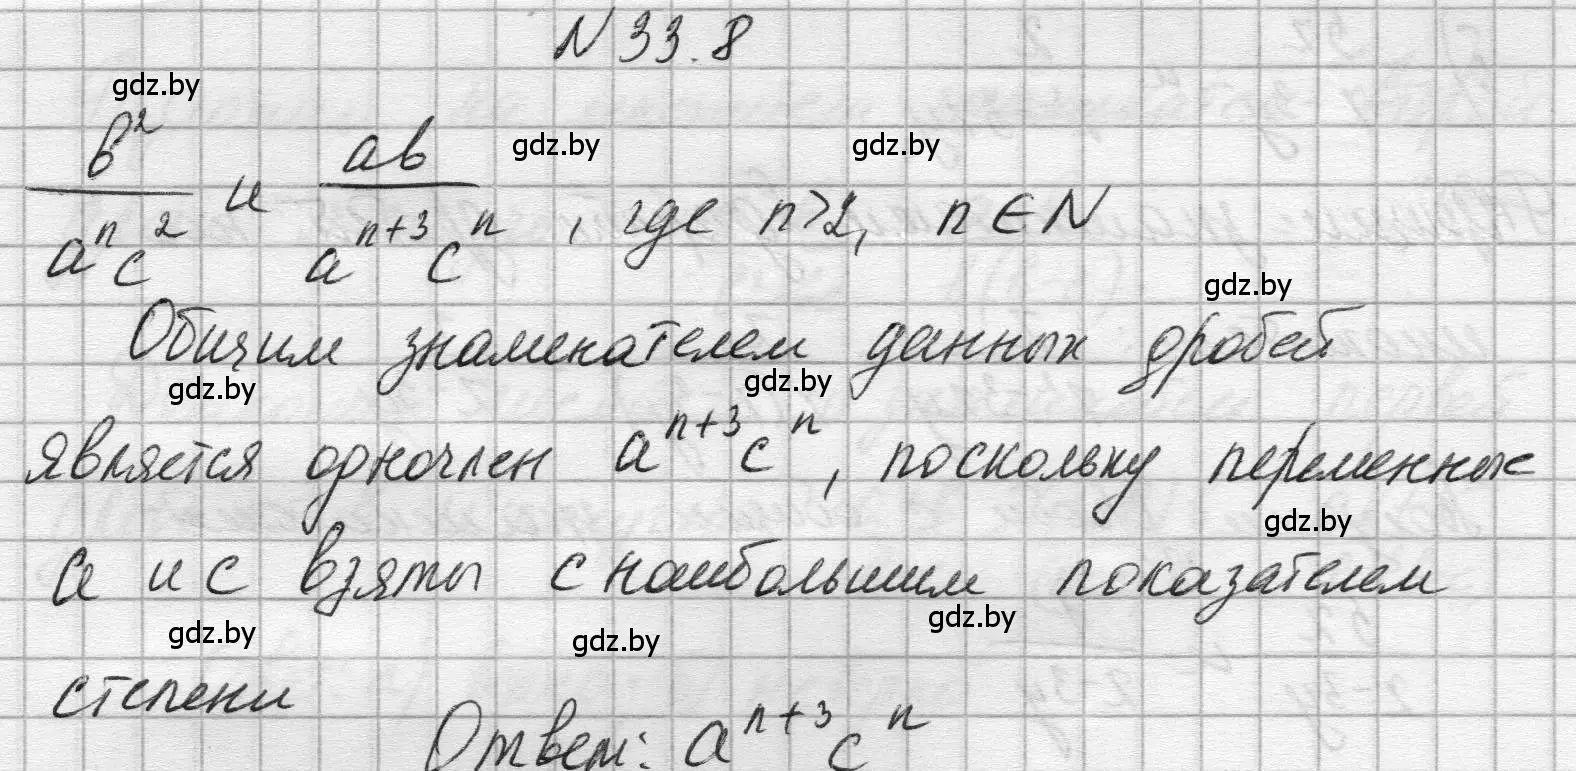 N 33.8
gdz.by
b² / aⁿc² и ab / aⁿ⁺³cⁿ, где n>2, n∈N
gdz.by gdz.by
gdz.by
Общим знаменателем данных дробей
gdz.by gdz.by
является одночлен aⁿ⁺³cⁿ, поскольку переменные
gdz.by
a и c взяты с наибольшим показателем
gdz.by gdz.by gdz.by
степени
Ответ: aⁿ⁺³cⁿ